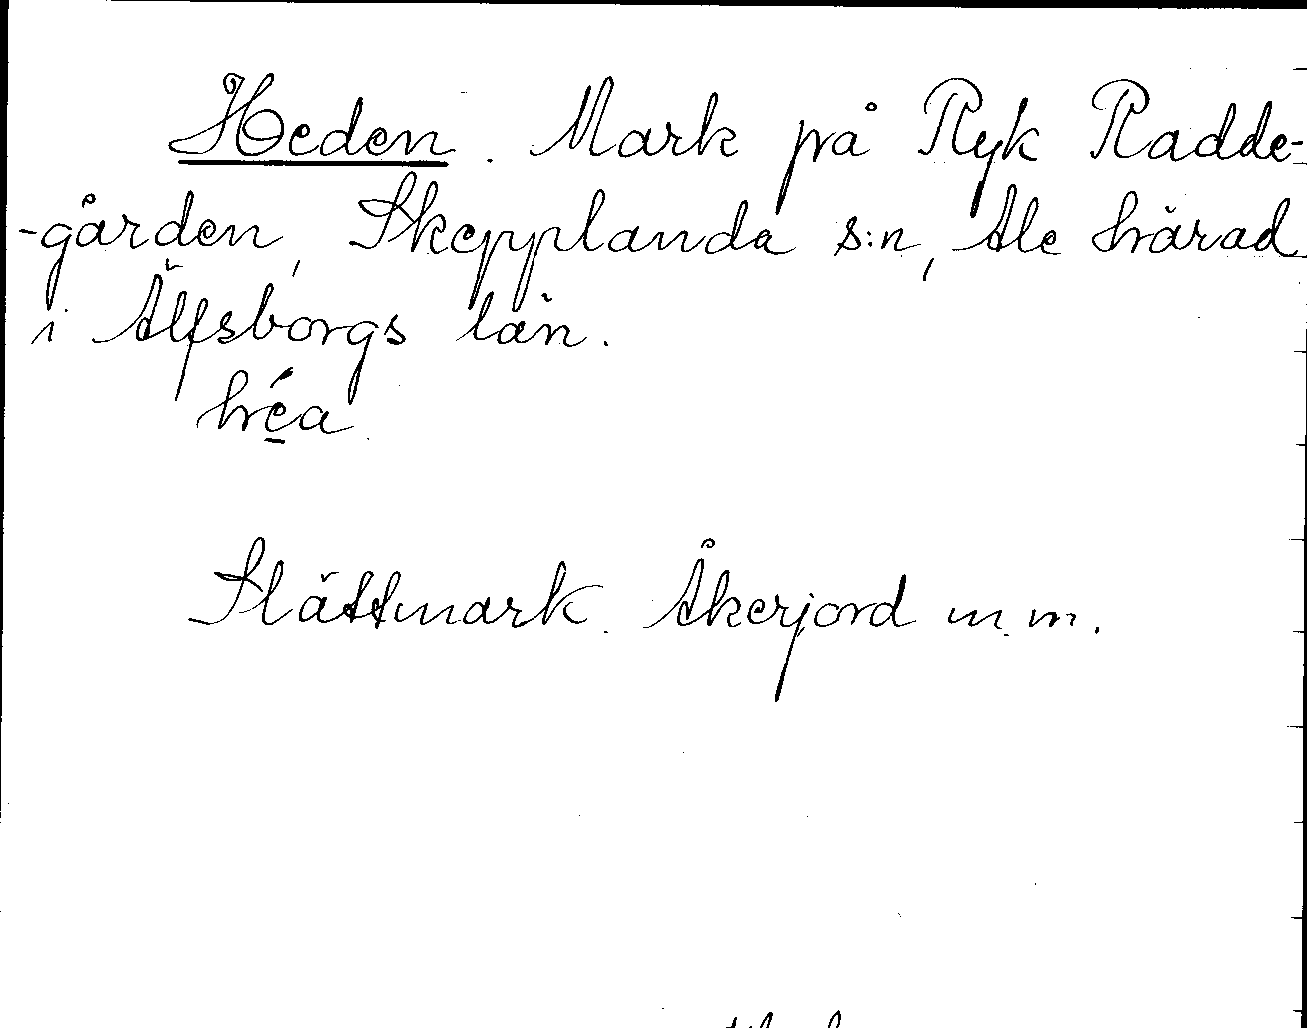 Heden. Mark på Ryk Radde-
-gården, Skepplanda s:n, Ale härad
i Älfsborgs län.
hé̲a
Slättmark. Åkerjord m.m.